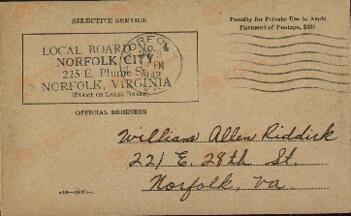 SELECTIVE SERVICE
Penalty for Private Use to Avoid
Payment of Postage, $300
LOCAL BOARD No. 4
NORFOLK CITY
225 E. Plume St.
NORFOLK, VIRGINIA
(STAMP OF LOCAL BOARD)
NORFOLK
1942
OFFICIAL BUSINESS
William Allen Riddick
221 E. 28th St.
Norfolk, Va.